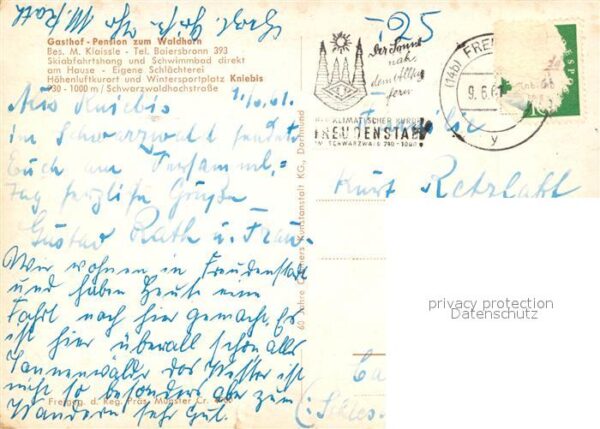 Gasthof - Pension zum Waldhorn
Bes. M. Klaissle - Tel. Baiersbronn 393
Skiabfahrtshang und Schwimmbad direkt
am Hause - Eigene Schlächterei
Höhenluftkurort und Wintersportplatz Kniebis
930 - 1000 m / Schwarzwaldhochstraße
Aus Kniebis
im Schwarzwald sendet
Euch am
Tag herzliche Grüße
Gustav Rath u. Frau.
Wir wohnen in Freudenstadt
und haben heute eine
Fahrt nach hier gemacht. Es
ist hier überall schön alles
Tannenwälder das Wetter ist
nicht so besonders aber zum
Wandern sehr gut.
Freigeg. d. Reg. Präs. Münster Cr.
60 Jahre Cramers Kunstanstalt KG., Dortmund
-25
Der Sonne
nah
dem Alltag
fern
HEILKLIMATISCHER KURORT
FREUDENSTADT
IM SCHWARZWALD 740 - 1000 m
(14b) FREU
9.6.6
y
Familie
Kurt Retzlaff
privacy protection
Datenschutz